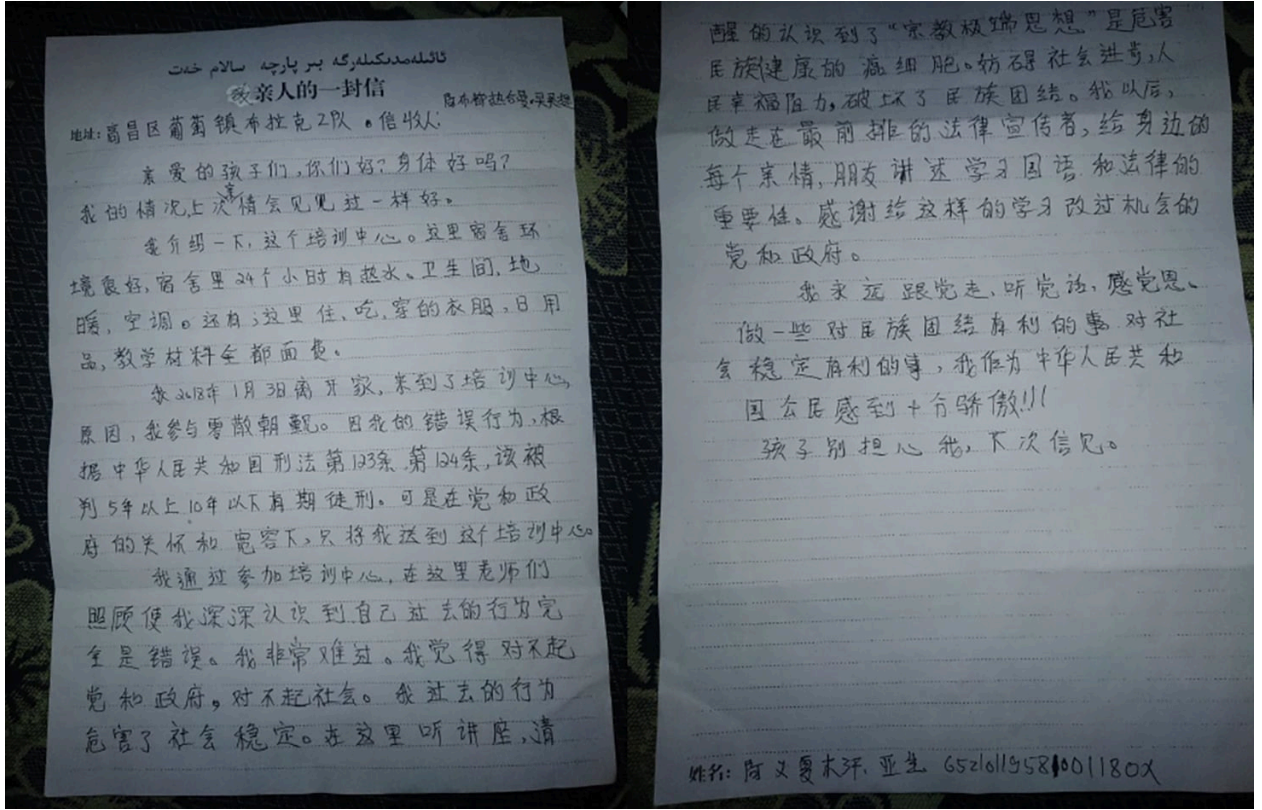 ئائىلەمدىكىلەرگە بىر پارچە سالام خەت
致亲人的一封信
地址:高昌区葡萄镇布拉克2队。信收人:
亲爱的孩子们,你们好?身体好吗?
我的情况上次亲情会见见过一样好。
我介绍一下,这个培训中心。这里宿舍环
境良好,宿舍里24个小时有热水。卫生间,地
暖,空调。还有,这里住、吃,穿的衣服,日用
品,教学材料全都面费。
我2018年1月3日离开家,来到了培训中心,
原因,我参与零散朝觐。因我的错误行为,根
据中华人民共和国刑法第123条,第124条,该被
判5年以上10年以下有期徒刑。可是在党和政
府的关怀和宽容下,只将我送到这个培训中心。
我通过参加培训中心,在这里老师们
照顾使我深深认识到自己过去的行为完
全是错误。我非常难过。我觉得对不起
党和政府,对不起社会。我过去的行为
危害了社会稳定。在这里听讲座,清
醒的认识到了“宗教极端思想”是危害
民族健康的癌细胞。妨碍社会进步,人
民幸福阻力,破坏了民族团结。我以后,
做走在最前排的法律宣传者,给身边的
每个亲情,朋友讲述学习国语和法律的
重要性。感谢给这样的学习改过机会的
党和政府。
我永远跟党走、听党话,感党恩、
做一些对民族团结有利的事,对社
会稳定有利的事,我作为中华人民共和
国公民感到十分骄傲!!!
孩子别担心我,下次信见。
姓名:阿义夏木汗.亚生